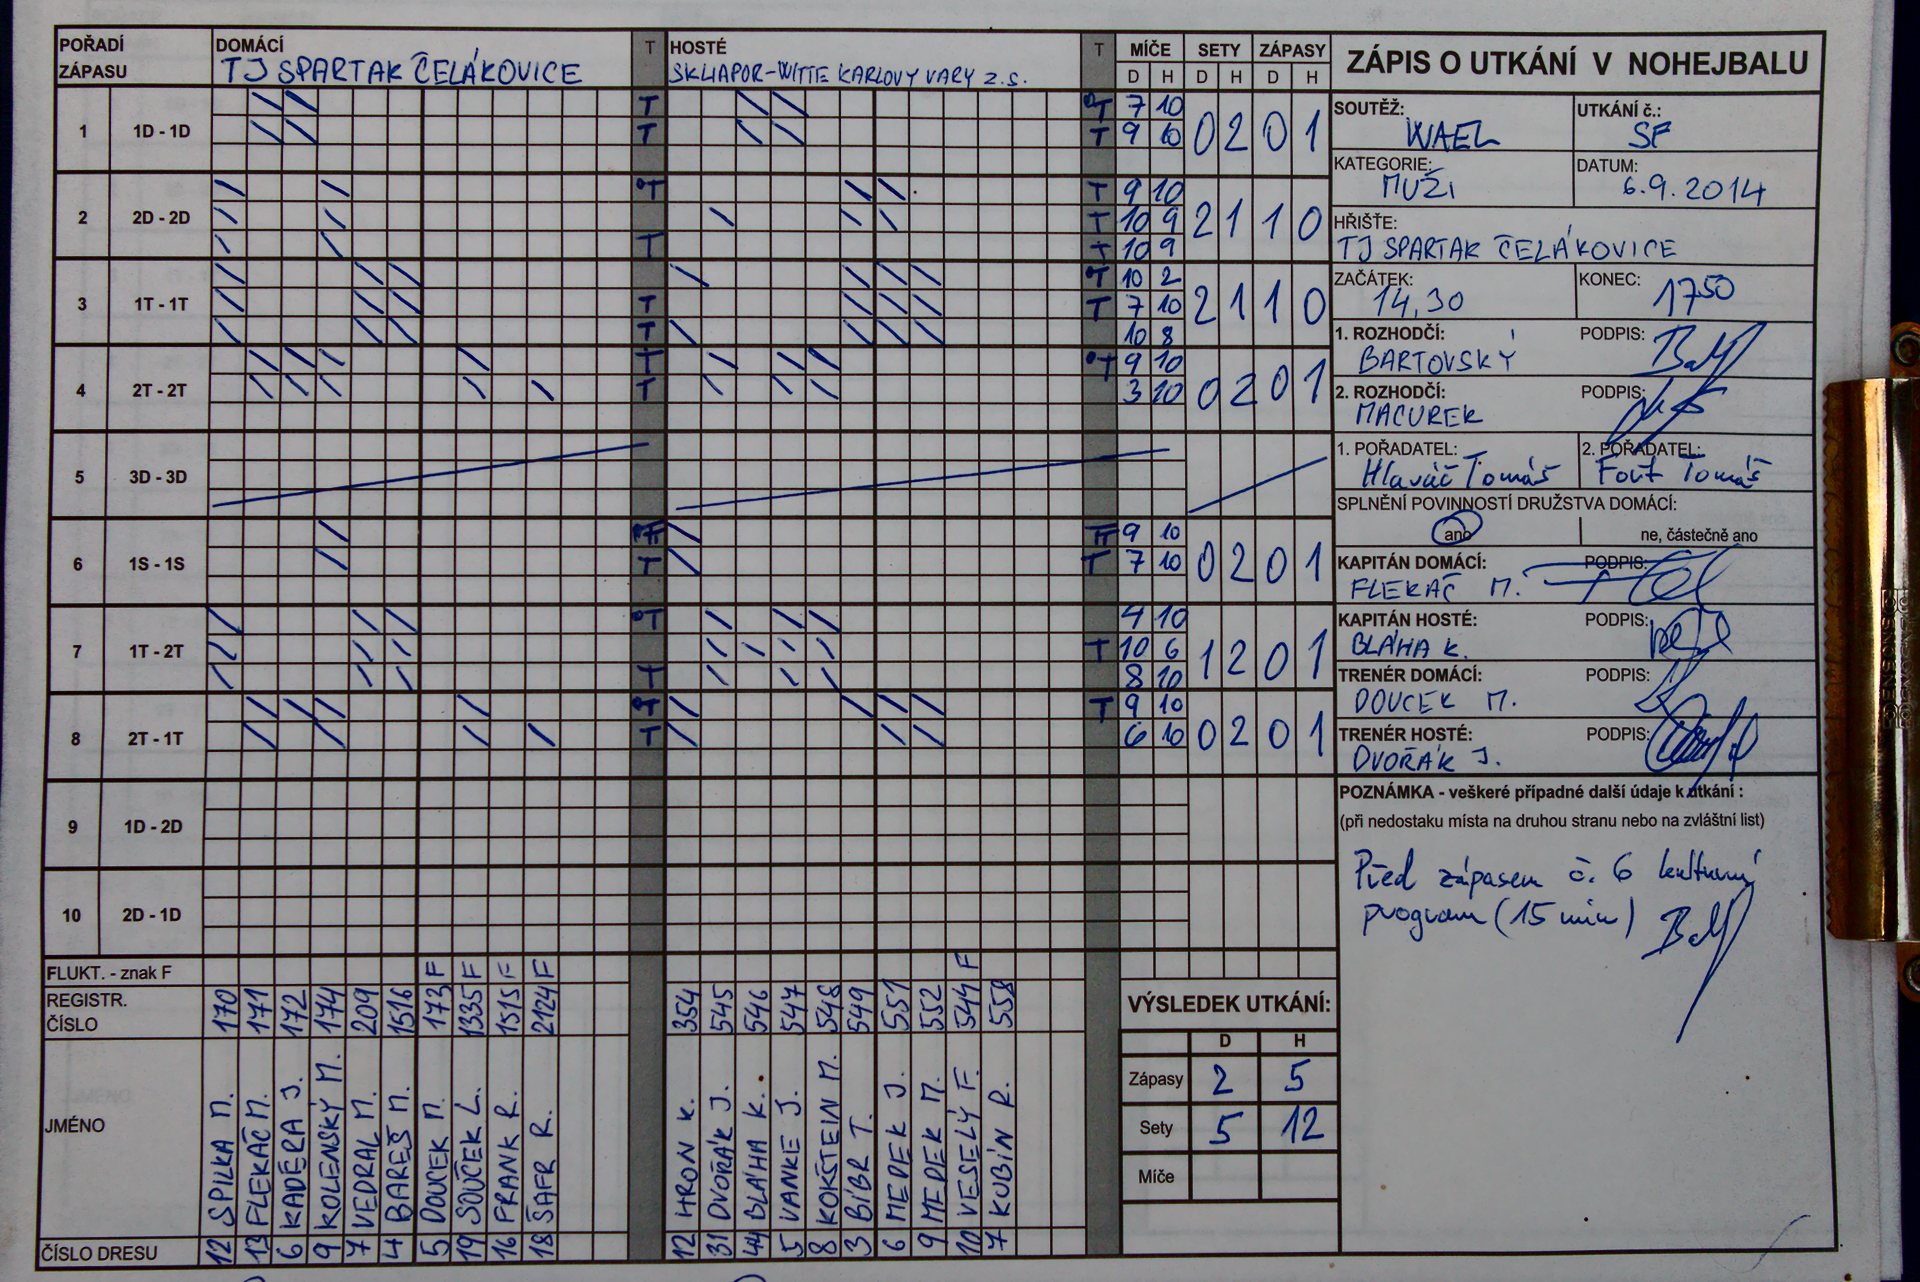 POŘADÍ ZÁPASU
DOMÁCÍ
TJ SPARTAK ČELÁKOVICE
T
HOSTÉ
SKLIAPOR-WITTE KARLOVY VARY z.s.
T
MÍČE SETY ZÁPASY
D H D H D H
1 1D - 1D T T T T 7 10 9 10 0 2 0 1
2 2D - 2D T T T T T 9 10 10 9 10 9 2 1 1 0
3 1T - 1T T T T T 10 2 7 10 10 8 2 1 1 0
4 2T - 2T T T T 9 10 3 10 0 2 0 1
5 3D - 3D
6 1S - 1S T T 9 10 7 10 0 2 0 1
7 1T - 2T T T T 4 10 10 6 8 10 1 2 0 1
8 2T - 1T T T T 9 10 6 10 0 2 0 1
9 1D - 2D
10 2D - 1D
FLUKT. - znak F F F F F F
REGISTR. ČÍSLO 170 171 172 174 209 1516 173 1335 1515 2124 354 545 546 547 548 549 551 552 544 558
JMÉNO
SPILKA M.
FLEKAČ M.
KADĚRA J.
KOLENSKÝ M.
VEDRAL M.
BAREŠ M.
DOUCEK M.
SOUČEK L.
FRANK R.
ŠAFR R.
HRON K.
DVOŘÁK J.
BLÁHA K.
VANKE J.
KOKŠTEIN M.
BÍBR T.
MEDEK J.
MEDEK M.
VESELÝ F.
KUBÍN R.
ČÍSLO DRESU 12 13 6 9 7 4 5 19 16 18 12 31 44 5 8 3 6 9 10 7
VÝSLEDEK UTKÁNÍ:
D H
Zápasy 2 5
Sety 5 12
Míče
ZÁPIS O UTKÁNÍ V NOHEJBALU
SOUTĚŽ: WAEL
UTKÁNÍ č.: SF
KATEGORIE: MUŽI
DATUM: 6.9.2014
HŘIŠTE:
TJ SPARTAK ČELÁKOVICE
ZAČÁTEK: 14,30
KONEC: 17 50
1. ROZHODČÍ: PODPIS:
BARTOVSKÝ
2. ROZHODČÍ: PODPIS:
MACUREK
1. POŘADATEL: Hlaváč Tomáš
2. POŘADATEL: Fout Tomáš
SPLNĚNÍ POVINNOSTÍ DRUŽSTVA DOMÁCÍ:
ano ne, částečně ano
KAPITÁN DOMÁCÍ: PODPIS:
FLEKAČ M.
KAPITÁN HOSTÉ: PODPIS:
BLÁHA K.
TRENÉR DOMÁCÍ: PODPIS:
DOUCEK M.
TRENÉR HOSTÉ: PODPIS:
DVOŘÁK J.
POZNÁMKA - veškeré případné další údaje k utkání :
(při nedostaku místa na druhou stranu nebo na zvláštní list)
Před zápasem č. 6 kulturní
program (15 min)